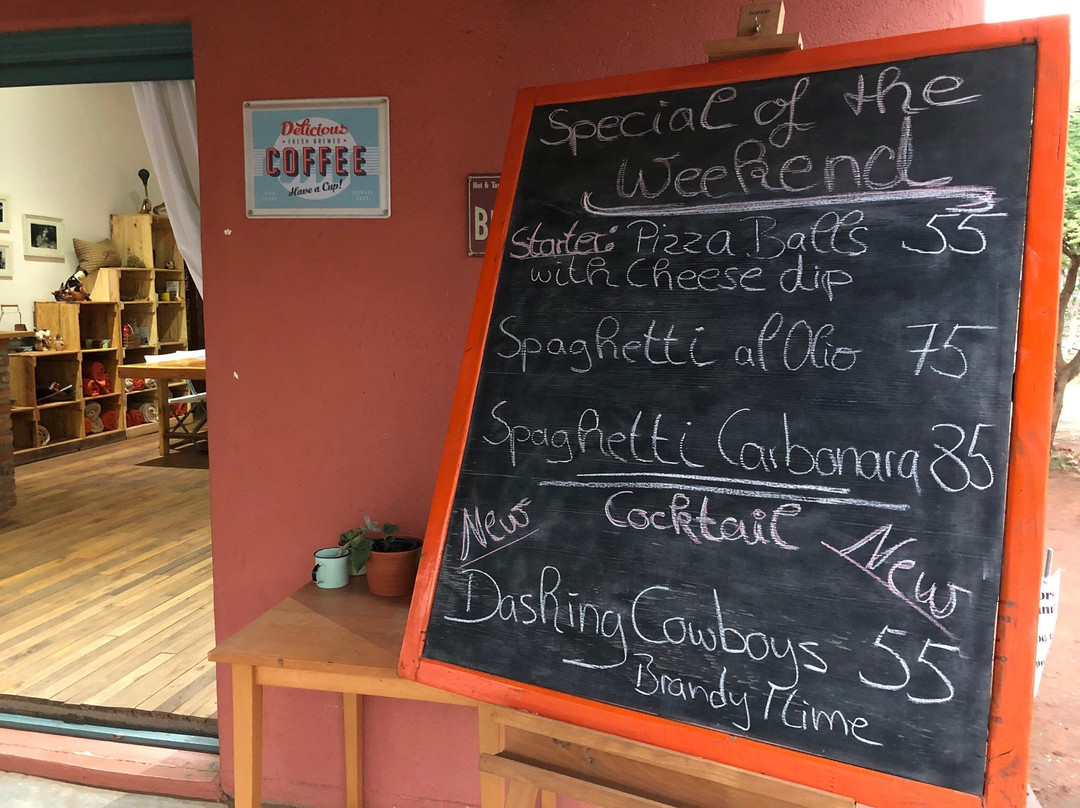 Delicious
FRESH BREWED
COFFEE
Have a Cup!
Hot & Ta
B
Special of the
Weekend
Starter: Pizza Balls 55
with Cheese dip
Spaghetti al Olio 75
Spaghetti Carbonara 85
Cocktail
New
New
Dashing Cowboys 55
Brandy & Lime